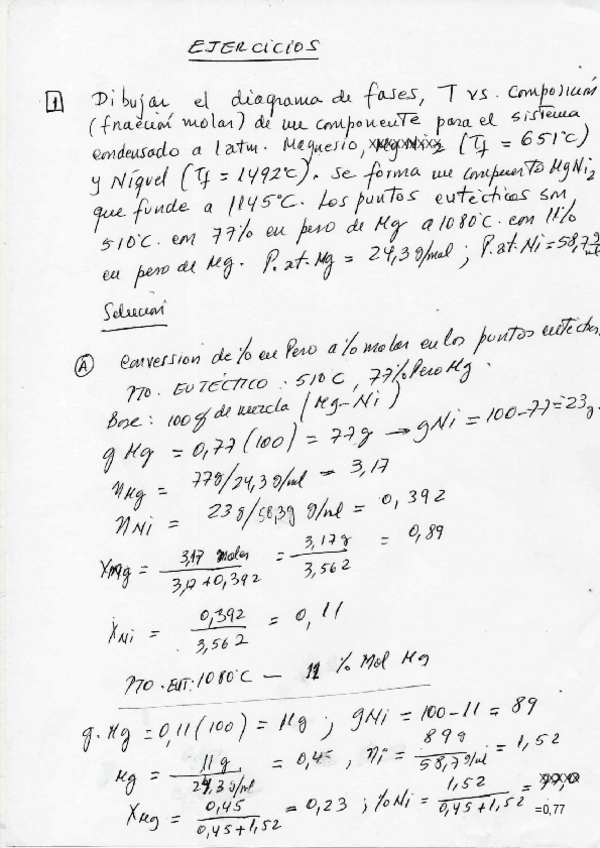 EJERCICIOS
1 Dibujar el diagrama de fases, T vs. Composición
(fracción molar) de un componente para el sistema
condensado a 1atm. Magnesio, (Tf = 651°C)
y Níquel (Tf = 1492°C). Se forma un compuesto MgNi2
que funde a 1145°C. Los puntos eutécticos son
510°C. con 77% en peso de Mg a 1080°C. con 11%
en peso de Mg. P.at.Mg = 24,3 g/mol; P.at.Ni=58,7 g/ml
Solución
A Conversion de % en Peso a % molar en los puntos eutectos.
PTO. EUTÉCTICO : 510°C, 77% Peso Mg.
Base: 100 g de mezcla (Mg-Ni)
g Mg = 0,77 (100) = 77g → gNi = 100-77=23g.
nMg = 77g/24,3 g/ml = 3,17
nNi = 23g/58,3g g/ml = 0,392
XMg = 3,17 moles / 3,17+0,392 = 3,17g / 3,562 = 0,89
XNi = 0,392 / 3,562 = 0,11
PTO. EUT: 1080°C — 11 % Mol Mg
g. Mg = 0,11 (100) = Mg ; gNi = 100-11 = 89
Mg = 11 g. / 24,3 g/ml = 0,45 , Ni = 89g / 58,7 g/ml = 1,52
XMg = 0,45 / 0,45+1,52 = 0,23 ; %Ni = 1,52 / 0,45+1,52 = =0,77